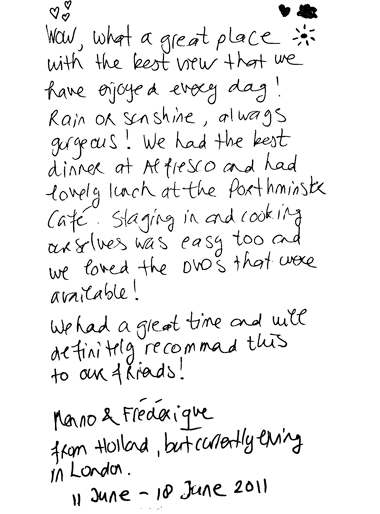 Wow, what a great place
with the best view that we
have enjoyed every day!
Rain or sunshine, always
gorgeous! We had the best
dinner at Alfresco and had
lovely lunch at the Porthminster
Café. Staying in and cooking
ourselves was easy too and
we loved the DVDs that were
available!
We had a great time and will
definitely recommend this
to our friends!
Menno & Fréderique
from Holland, but currently living
in London.
11 June - 18 June 2011